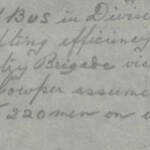 Bus in Divise
ting efficiency
try Brigade vic
Cowper assume
220 men on